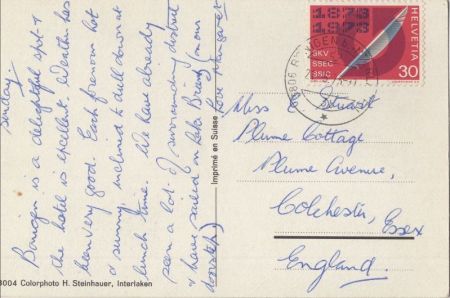 Sunday.
Bönigen is a delightful spot &
the hotel is excellent. Weather has
been very good. Each forenoon hot
& sunny, inclined to dull down at
lunch time. We have already
seen a lot of surrounding district
& have sailed on Lake Brienz (on our
doorstep!)
Love Margaret
8004 Colorphoto H. Steinhauer, Interlaken
Imprimé en Suisse
1873
1973
SKV
SSEC
SSIC
HELVETIA
30
Miss Stuart
Plume Cottage
Plume Avenue,
Colchester, Essex
England.